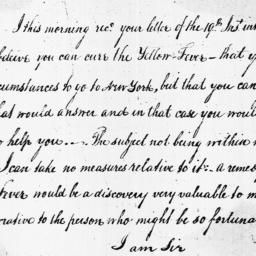 I this morning recd. your letter of the 19th. Inst in
believe you can cure the Yellow-Fever – that y
cumstances to go to New York, but that you can
hat would answer and in that case you would
to help you. . . – The subject not being within m
I can take no measures relative to it: a remed
Fever would be a discovery very valuable to m
crative to the person who might be so fortuna
I am Sir